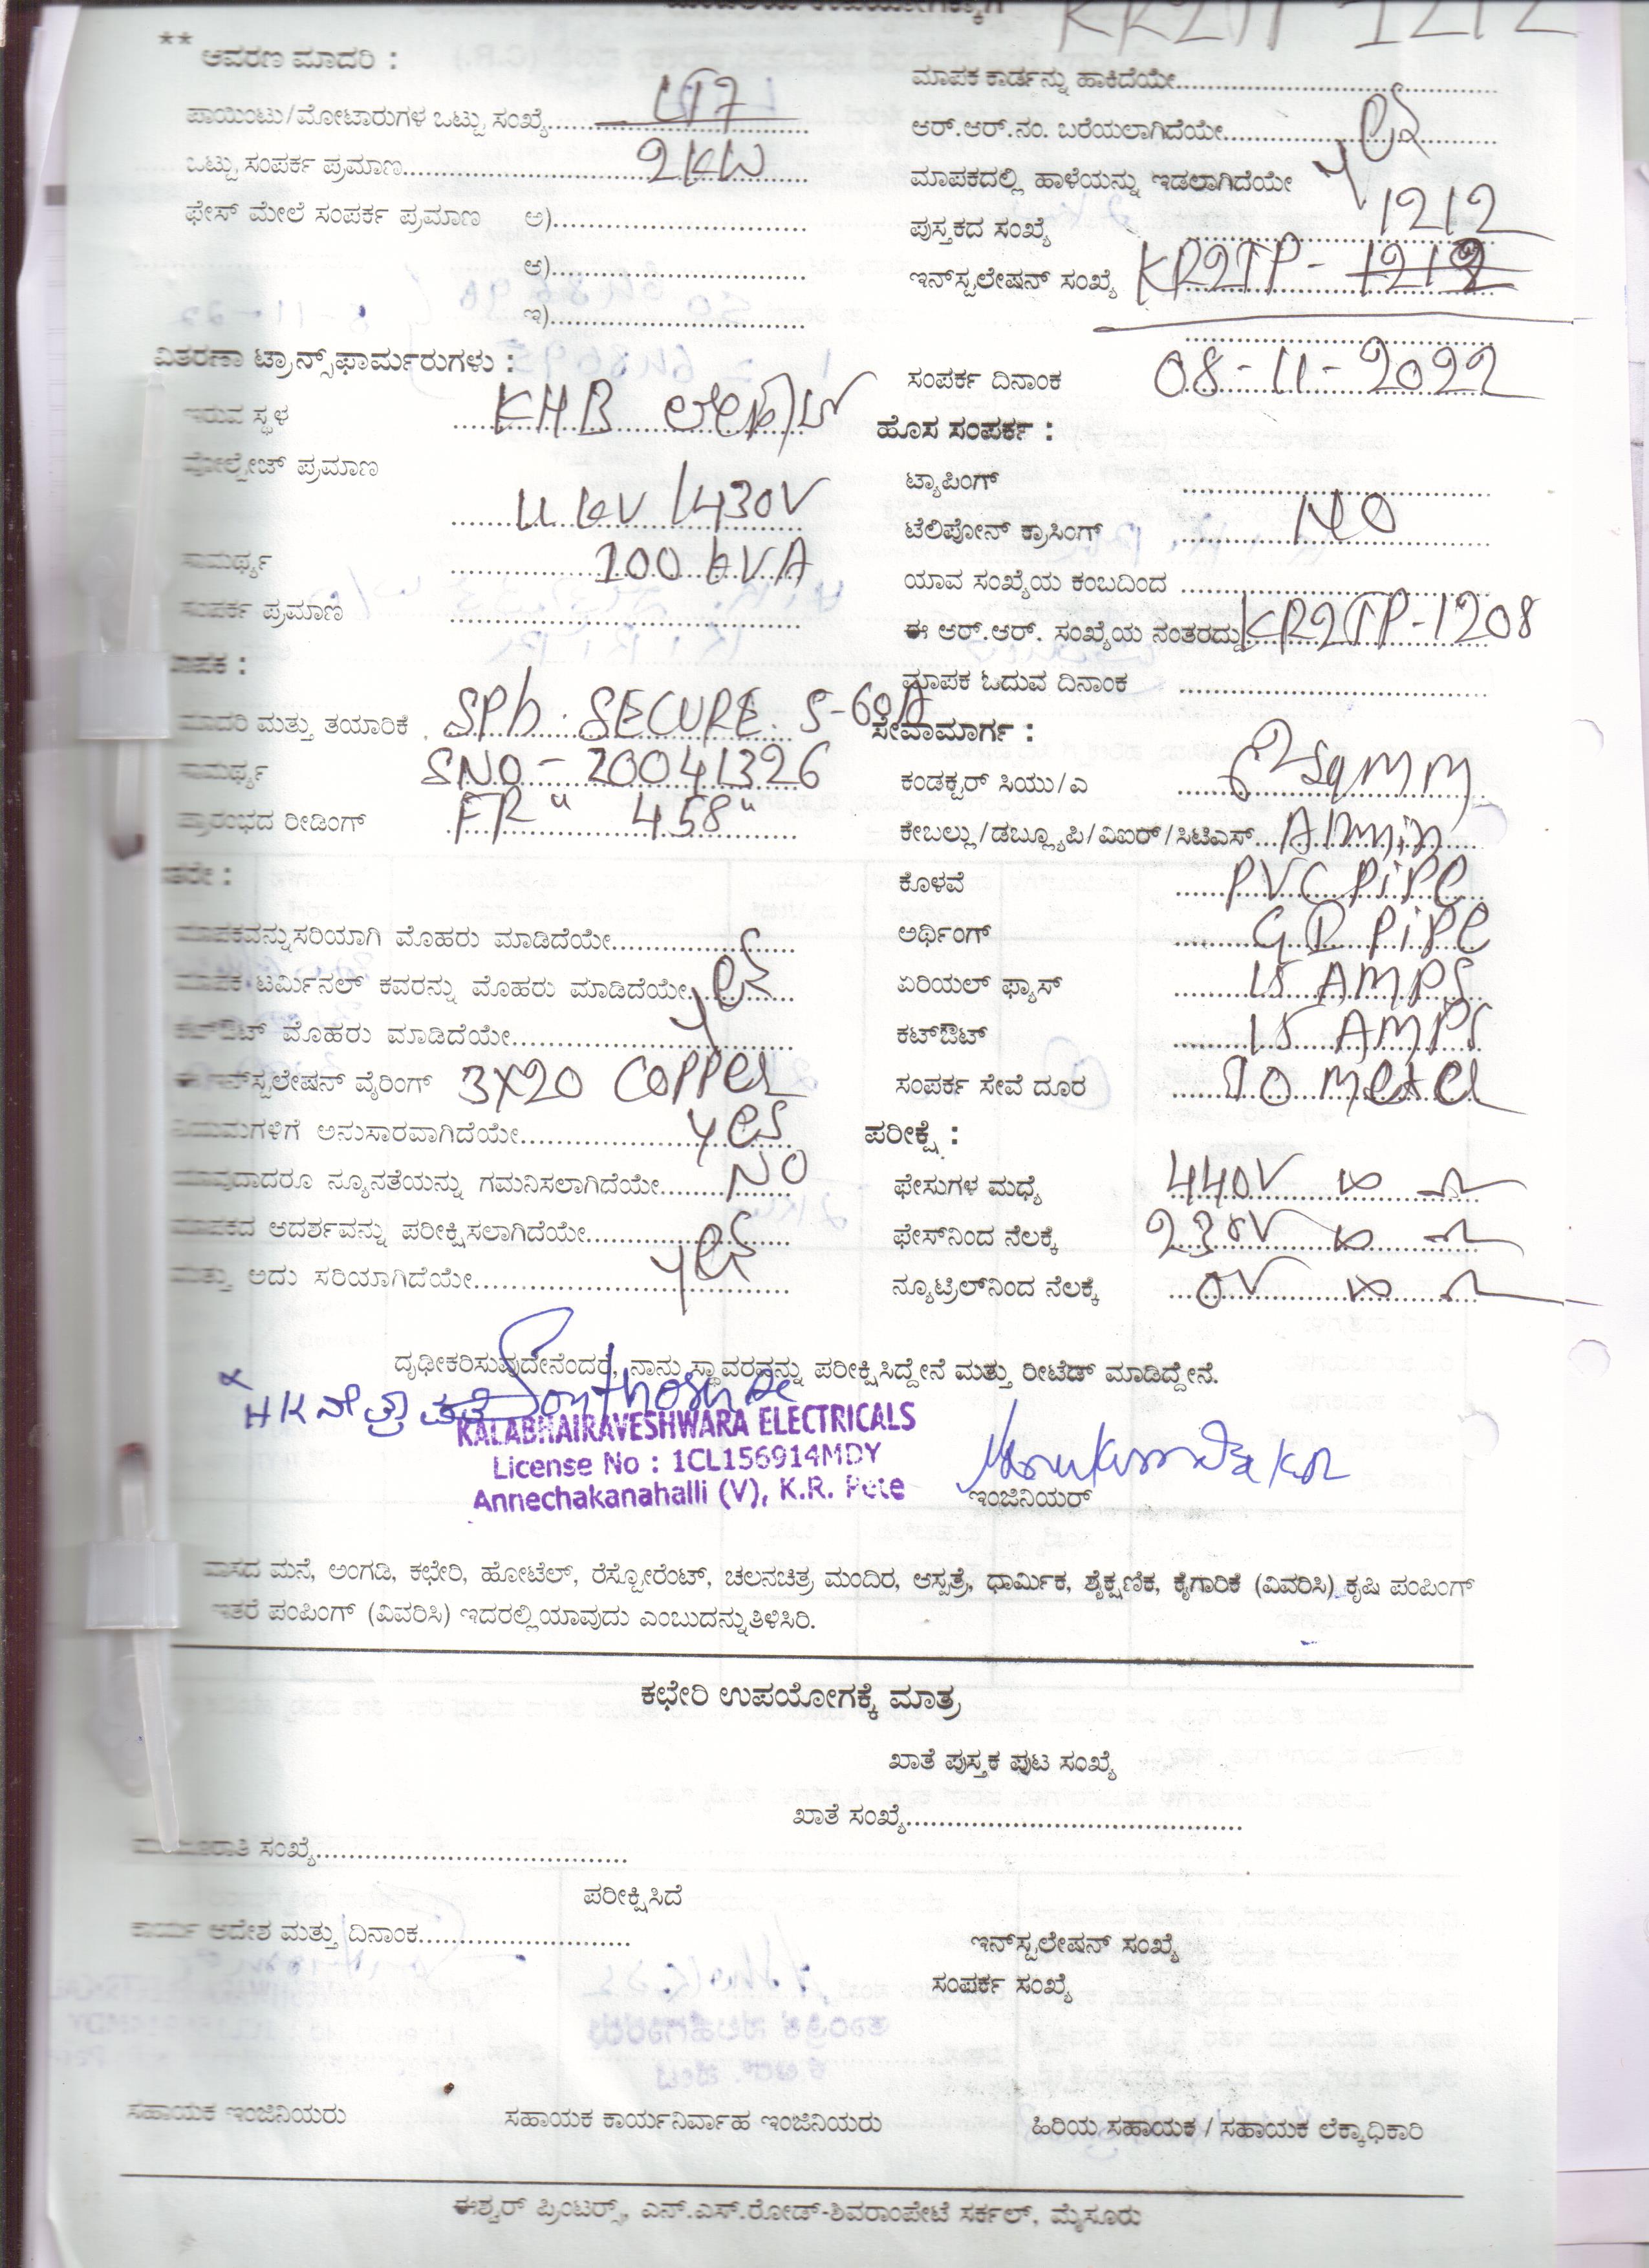 KR2TP 1212
** ಆವರಣ ಮಾದರಿ :
ಪಾಯಿಂಟು/ಮೋಟಾರುಗಳ ಒಟ್ಟು ಸಂಖ್ಯೆ.......... LT7
ಒಟ್ಟು ಸಂಪರ್ಕ ಪ್ರಮಾಣ.......... 2KW
ಫೇಸ್ ಮೇಲೆ ಸಂಪರ್ಕ ಪ್ರಮಾಣ ಅ)..........
ಆ)..........
ಇ)..........
ವಿತರಣಾ ಟ್ರಾನ್ಸ್‌ಫಾರ್ಮರುಗಳು :
ಇರುವ ಸ್ಥಳ KHB
ವೋಲ್ಟೇಜ್ ಪ್ರಮಾಣ
11 kV / 430V
ಸಾಮರ್ಥ್ಯ 100 kVA
ಸಂಪರ್ಕ ಪ್ರಮಾಣ ..........
ಮಾಪಕ :
ಮಾದರಿ ಮತ್ತು ತಯಾರಿಕೆ SPh. SECURE. 5-60A
ಸಾಮರ್ಥ್ಯ SNO - 20041326
ಪ್ರಾರಂಭದ ರೀಡಿಂಗ್ FR " 458"
ಇತರೇ :
ಮಾಪಕವನ್ನು ಸರಿಯಾಗಿ ಮೊಹರು ಮಾಡಿದೆಯೇ..........
ಮಾಪಕ ಟರ್ಮಿನಲ್ ಕವರನ್ನು ಮೊಹರು ಮಾಡಿದೆಯೇ.......... yes
ಕಟ್‌ಔಟ್ ಮೊಹರು ಮಾಡಿದೆಯೇ..........
ಈ ಇನ್‌ಸ್ಟಲೇಷನ್ ವೈರಿಂಗ್ 3X20 COPPer
ನಿಯಮಗಳಿಗೆ ಅನುಸಾರವಾಗಿದೆಯೇ.......... yes
ಯಾವುದಾದರೂ ನ್ಯೂನತೆಯನ್ನು ಗಮನಿಸಲಾಗಿದೆಯೇ.......... NO
ಮಾಪಕದ ಆದರ್ಶವನ್ನು ಪರೀಕ್ಷಿಸಲಾಗಿದೆಯೇ..........
ಮತ್ತು ಅದು ಸರಿಯಾಗಿದೆಯೇ.......... yes
ಮಾಪಕ ಕಾರ್ಡನ್ನು ಹಾಕಿದೆಯೇ..........
ಆರ್.ಆರ್.ನಂ. ಬರೆಯಲಾಗಿದೆಯೇ.......... yes
ಮಾಪಕದಲ್ಲಿ ಹಾಳೆಯನ್ನು ಇಡಲಾಗಿದೆಯೇ
ಪುಸ್ತಕದ ಸಂಖ್ಯೆ 1212
ಇನ್‌ಸ್ಟಲೇಷನ್ ಸಂಖ್ಯೆ KR2TP - 1212
ಸಂಪರ್ಕ ದಿನಾಂಕ 08-11-2022
ಹೊಸ ಸಂಪರ್ಕ :
ಟ್ಯಾಪಿಂಗ್ ..........
ಟೆಲಿಫೋನ್ ಕ್ರಾಸಿಂಗ್ NO
ಯಾವ ಸಂಖ್ಯೆಯ ಕಂಬದಿಂದ ..........
ಈ ಆರ್.ಆರ್. ಸಂಖ್ಯೆಯ ನಂತರದ್ದು KR2TP-1208
ಮಾಪಕ ಓದುವ ದಿನಾಂಕ ..........
ಸೇವಾಮಾರ್ಗ :
ಕಂಡಕ್ಟರ್ ಸಿಯು/ಎ sqmm
ಕೇಬಲ್ಲು/ಡಬ್ಲ್ಯೂಪಿ/ವಿಐಆರ್/ಸಿಟಿಎಸ್...
ಕೊಳವೆ PVC PiPe
ಅರ್ಥಿಂಗ್ GI PiPe
ಏರಿಯಲ್ ಫ್ಯಾಸ್ 15 AMPS
ಕಟ್‌ಔಟ್ 15 AMPS
ಸಂಪರ್ಕ ಸೇವೆ ದೂರ 10 meter
ಪರೀಕ್ಷೆ :
ಫೇಸುಗಳ ಮಧ್ಯೆ 440V ∞ Ω
ಫೇಸ್‌ನಿಂದ ನೆಲಕ್ಕೆ 230V ∞ Ω
ನ್ಯೂಟ್ರಲ್‌ನಿಂದ ನೆಲಕ್ಕೆ 0V ∞ Ω
ದೃಢೀಕರಿಸುವುದೇನೆಂದರೆ, ನಾನು ಸ್ಥಾವರವನ್ನು ಪರೀಕ್ಷಿಸಿದ್ದೇನೆ ಮತ್ತು ರೀಟೆಡ್ ಮಾಡಿದ್ದೇನೆ.
KALABHAIRAVESHWARA ELECTRICALS
License No : 1CL156914MDY
Annechakanahalli (V), K.R. Pete
ಇಂಜಿನಿಯರ್
ವಾಸದ ಮನೆ, ಅಂಗಡಿ, ಕಛೇರಿ, ಹೋಟೆಲ್, ರೆಸ್ಟೋರೆಂಟ್, ಚಲನಚಿತ್ರ ಮಂದಿರ, ಆಸ್ಪತ್ರೆ, ಧಾರ್ಮಿಕ, ಶೈಕ್ಷಣಿಕ, ಕೈಗಾರಿಕೆ (ವಿವರಿಸಿ) ಕೃಷಿ ಪಂಪಿಂಗ್
ಇತರೆ ಪಂಪಿಂಗ್ (ವಿವರಿಸಿ) ಇದರಲ್ಲಿ ಯಾವುದು ಎಂಬುದನ್ನು ತಿಳಿಸಿರಿ.
ಕಛೇರಿ ಉಪಯೋಗಕ್ಕೆ ಮಾತ್ರ
ಖಾತೆ ಪುಸ್ತಕ ಪುಟ ಸಂಖ್ಯೆ
ಖಾತೆ ಸಂಖ್ಯೆ..........
ಮಂಜೂರಾತಿ ಸಂಖ್ಯೆ..........
ಪರೀಕ್ಷಿಸಿದೆ
ಕಾರ್ಯ ಆದೇಶ ಮತ್ತು ದಿನಾಂಕ..........
ಇನ್‌ಸ್ಟಲೇಷನ್ ಸಂಖ್ಯೆ
ಸಂಪರ್ಕ ಸಂಖ್ಯೆ
ಸಹಾಯಕ ಇಂಜಿನಿಯರು ಸಹಾಯಕ ಕಾರ್ಯನಿರ್ವಾಹ ಇಂಜಿನಿಯರು ಹಿರಿಯ ಸಹಾಯಕ / ಸಹಾಯಕ ಲೆಕ್ಕಾಧಿಕಾರಿ
ಈಶ್ವರ್ ಪ್ರಿಂಟರ್ಸ್, ಎನ್.ಎಸ್.ರೋಡ್-ಶಿವರಾಂಪೇಟೆ ಸರ್ಕಲ್, ಮೈಸೂರು